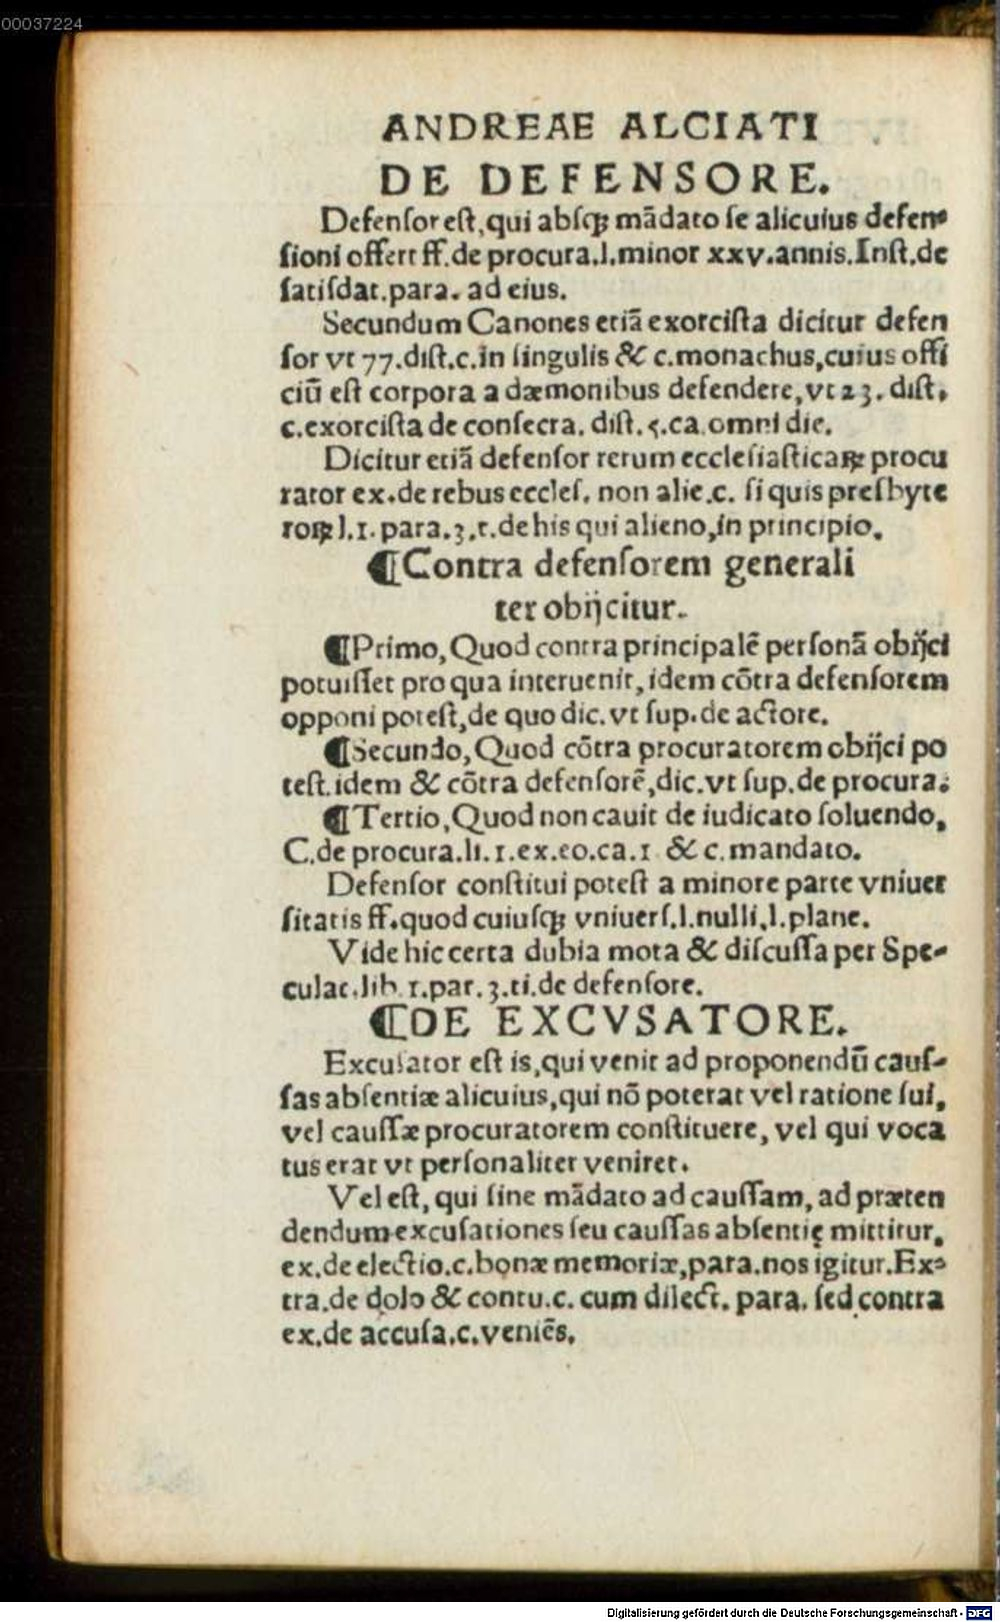 00037224
ANDREAE ALCIATI
DE DEFENSORE.
Defenſor eſt, qui abſqꝫ mãdato ſe alicuius defen-
ſioni offert ff.de procura.l.minor xxv.annis.Inſt.de
ſatiſdat.para. ad eius.
Secundum Canones etiã exorciſta dicitur defen
ſor vt 77.diſt.c.in ſingulis & c.monachus,cuius offi
ciũ eſt corpora a dæmonibus defendere,vt 23. diſt.
c.exorciſta de conſecra. diſt. 5.ca.omni die.
Dicitur etiã defenſor rerum eccleſiaſticaꝝ procu
rator ex.de rebus eccleſ. non alie.c. ſi quis preſbyte
roꝝ l.1. para.3.t.de his qui alieno,in principio.
¶Contra defenſorem generali
ter obijcitur.
¶Primo, Quod contra principalẽ perſonã obijci
potuiſſet pro qua interuenit, idem cõtra defenſorem
opponi poteſt,de quo dic. vt ſup.de actore.
¶Secundo, Quod cõtra procuratorem obijci po
teſt.idem & cõtra defenſorẽ,dic.vt ſup.de procura.
¶Tertio, Quod non cauit de iudicato ſoluendo,
C.de procura.li.1.ex.eo.ca.1 & c.mandato.
Defenſor conſtitui poteſt a minore parte vniuer
ſitatis ff.quod cuiuſqꝫ vniuerſ.l.nulli.l.plane.
Vide hic certa dubia mota & diſcuſſa per Spe-
culat.lib.1.par.3.ti.de defenſore.
¶DE EXCVSATORE.
Excuſator eſt is,qui venit ad proponendũ cauſ-
ſas abſentiæ alicuius,qui nõ poterat vel ratione ſui,
vel cauſſæ procuratorem conſtituere, vel qui voca
tus erat vt perſonaliter veniret.
Vel eſt, qui ſine mãdato ad cauſſam, ad præten
dendum excuſationes ſeu cauſſas abſentię mittitur.
ex.de electio.c.bonæ memoriæ,para.nos igitur.Ex-
tra.de dolo & contu.c. cum dilect. para. ſed contra
ex.de accuſa.c.veniẽs.
Digitalisierung gefördert durch die Deutsche Forschungsgemeinschaft - DFG